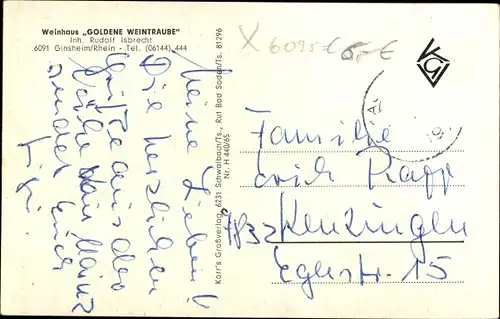 Weinhaus „GOLDENE WEINTRAUBE"
Inh. Rudolf Isbrecht
6091 Ginsheim/Rhein - Tel. (06144) 444
Meine Lieben!
Die herzlichen
Grüße aus der
Nähe von Mainz
sendet Euch
Karr's Großverlag, 6231 Schwalbach/Ts., Ruf Bad Soden/Ts. 81296
Nr. H 440/65
X 6095
5,-€
Familie
Erich Rapp
7832 Kenzingen
Eglestr. 15